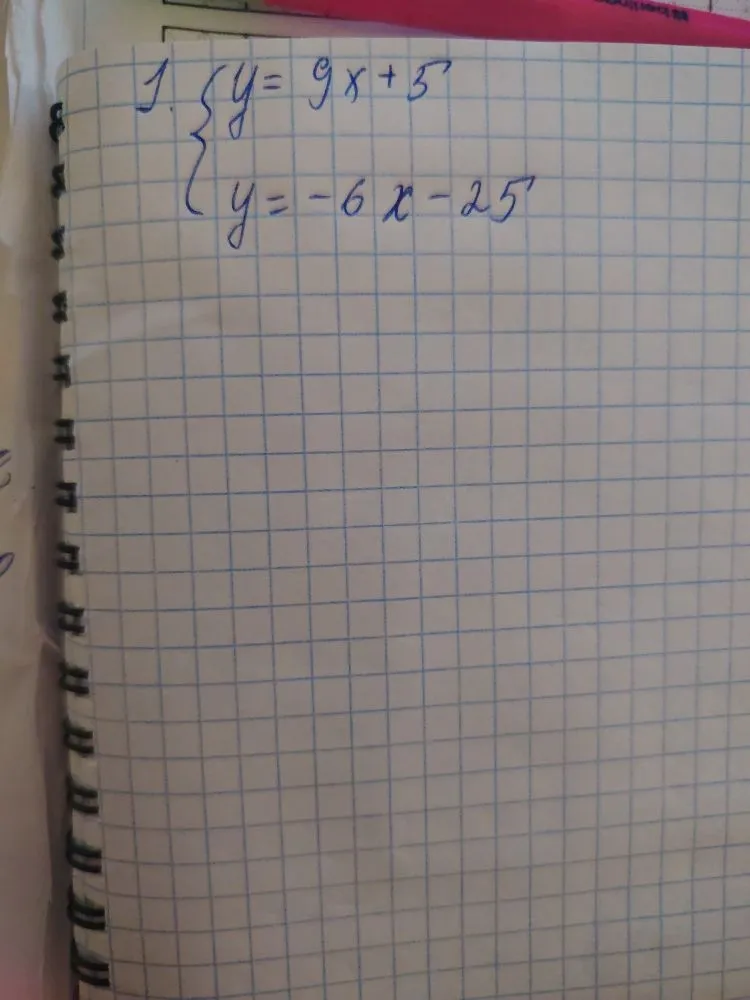 1. { y = 9x + 5
y = -6x - 25